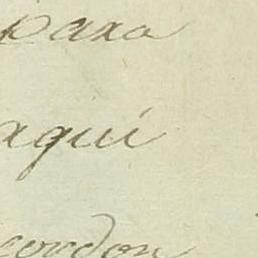 para
aqui
cordon